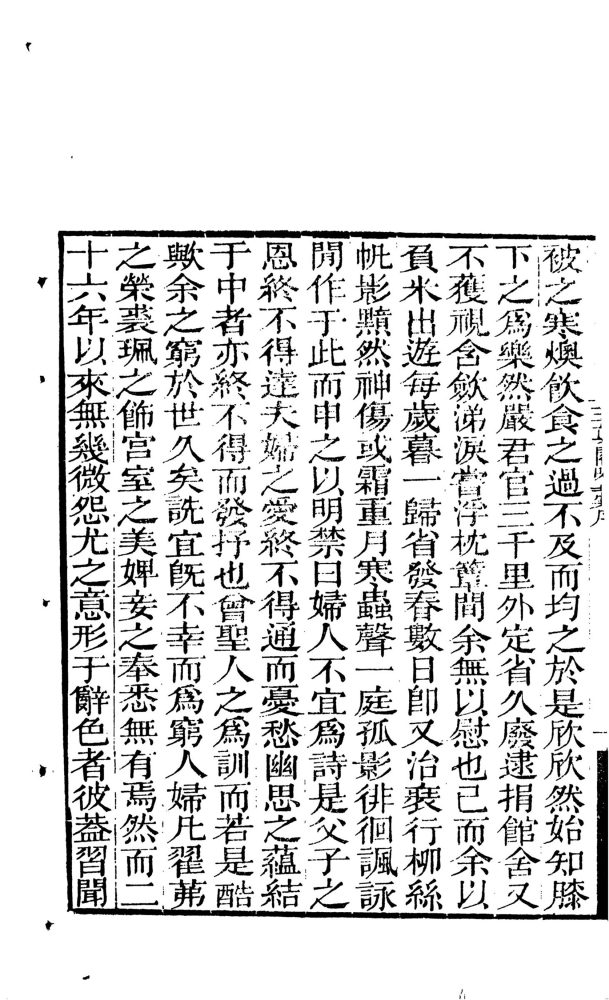 被之寒燠飮食之過不及而均之於是欣欣然始知膝
下之爲樂然嚴君官三千里外定省久廢逮捐館舍又
不獲視含歛涕淚嘗浮枕簟間余無以慰也已而余以
負米出遊每歲暮一歸省發春數日卽又治裝行柳絲
帆影黯然神傷或霜重月寒蟲聲一庭孤影徘徊諷詠
閒作于此而申之以明禁曰婦人不宜爲詩是父子之
恩終不得達夫婦之愛終不得通而憂愁幽思之蘊結
于中者亦終不得而發抒也曾聖人之爲訓而若是酷
歟余之窮於世久矣詵宜旣不幸而爲窮人婦凡翟茀
之榮裘珮之飾宫室之美婢妾之奉悉無有焉然而二
十六年以來無幾微怨尤之意形于辭色者彼葢習聞